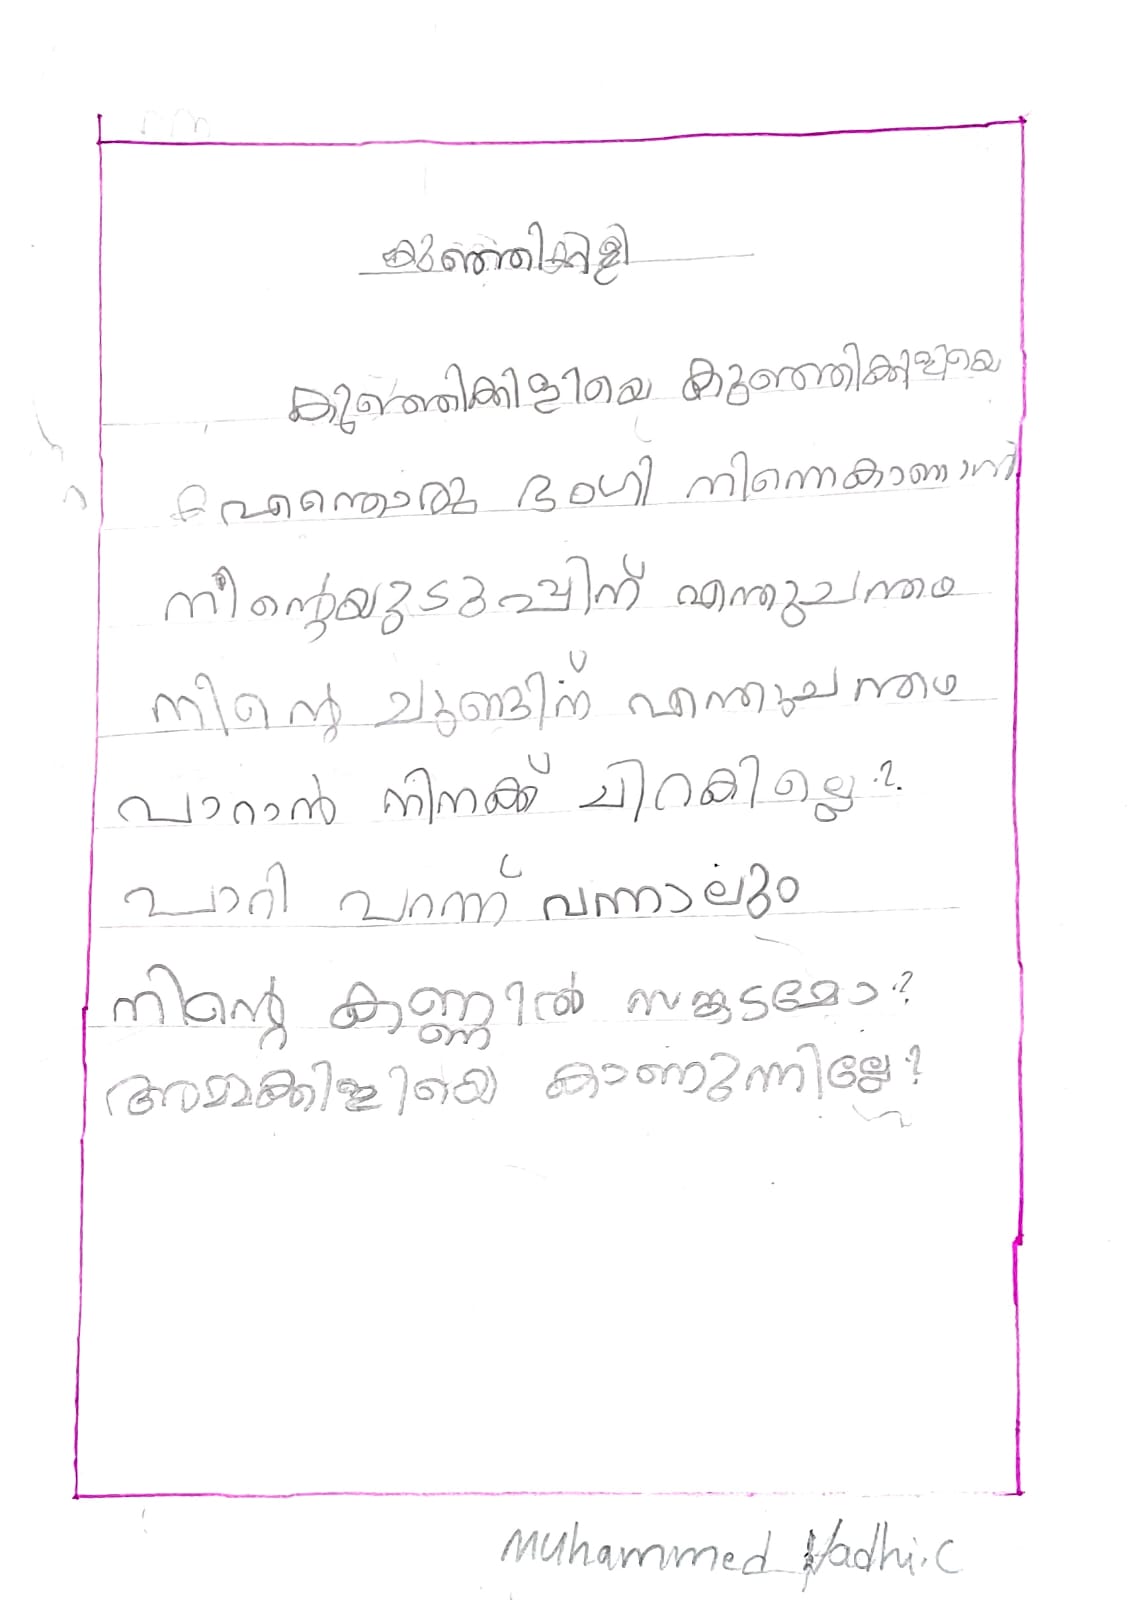 കുഞ്ഞികിളി
കുഞ്ഞിക്കിളിയെ കുഞ്ഞിക്കിളിയെ
എന്തൊരു ഭംഗി നിന്നെകാണാൻ
നിന്റെയുടുപ്പിന് എന്തുചന്തം
നിന്റെ ചുണ്ടിന് എന്തുചന്തം
പാറാൻ നിനക്ക് ചിറകില്ലെ?
പാറി പറന്ന് വന്നാലും
നിന്റെ കണ്ണിൽ സങ്കടമോ?
അമ്മക്കിളിയെ കാണുന്നില്ലേ?
Muhammed Hadhi.C